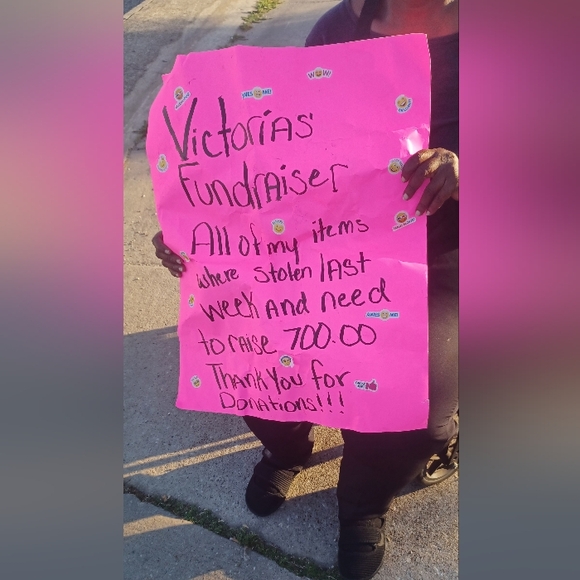 Victorias'
Fundraiser
All of my items
where stolen last
week and need
to raise 700.00
Thank You for
Donations!!!
WOW!